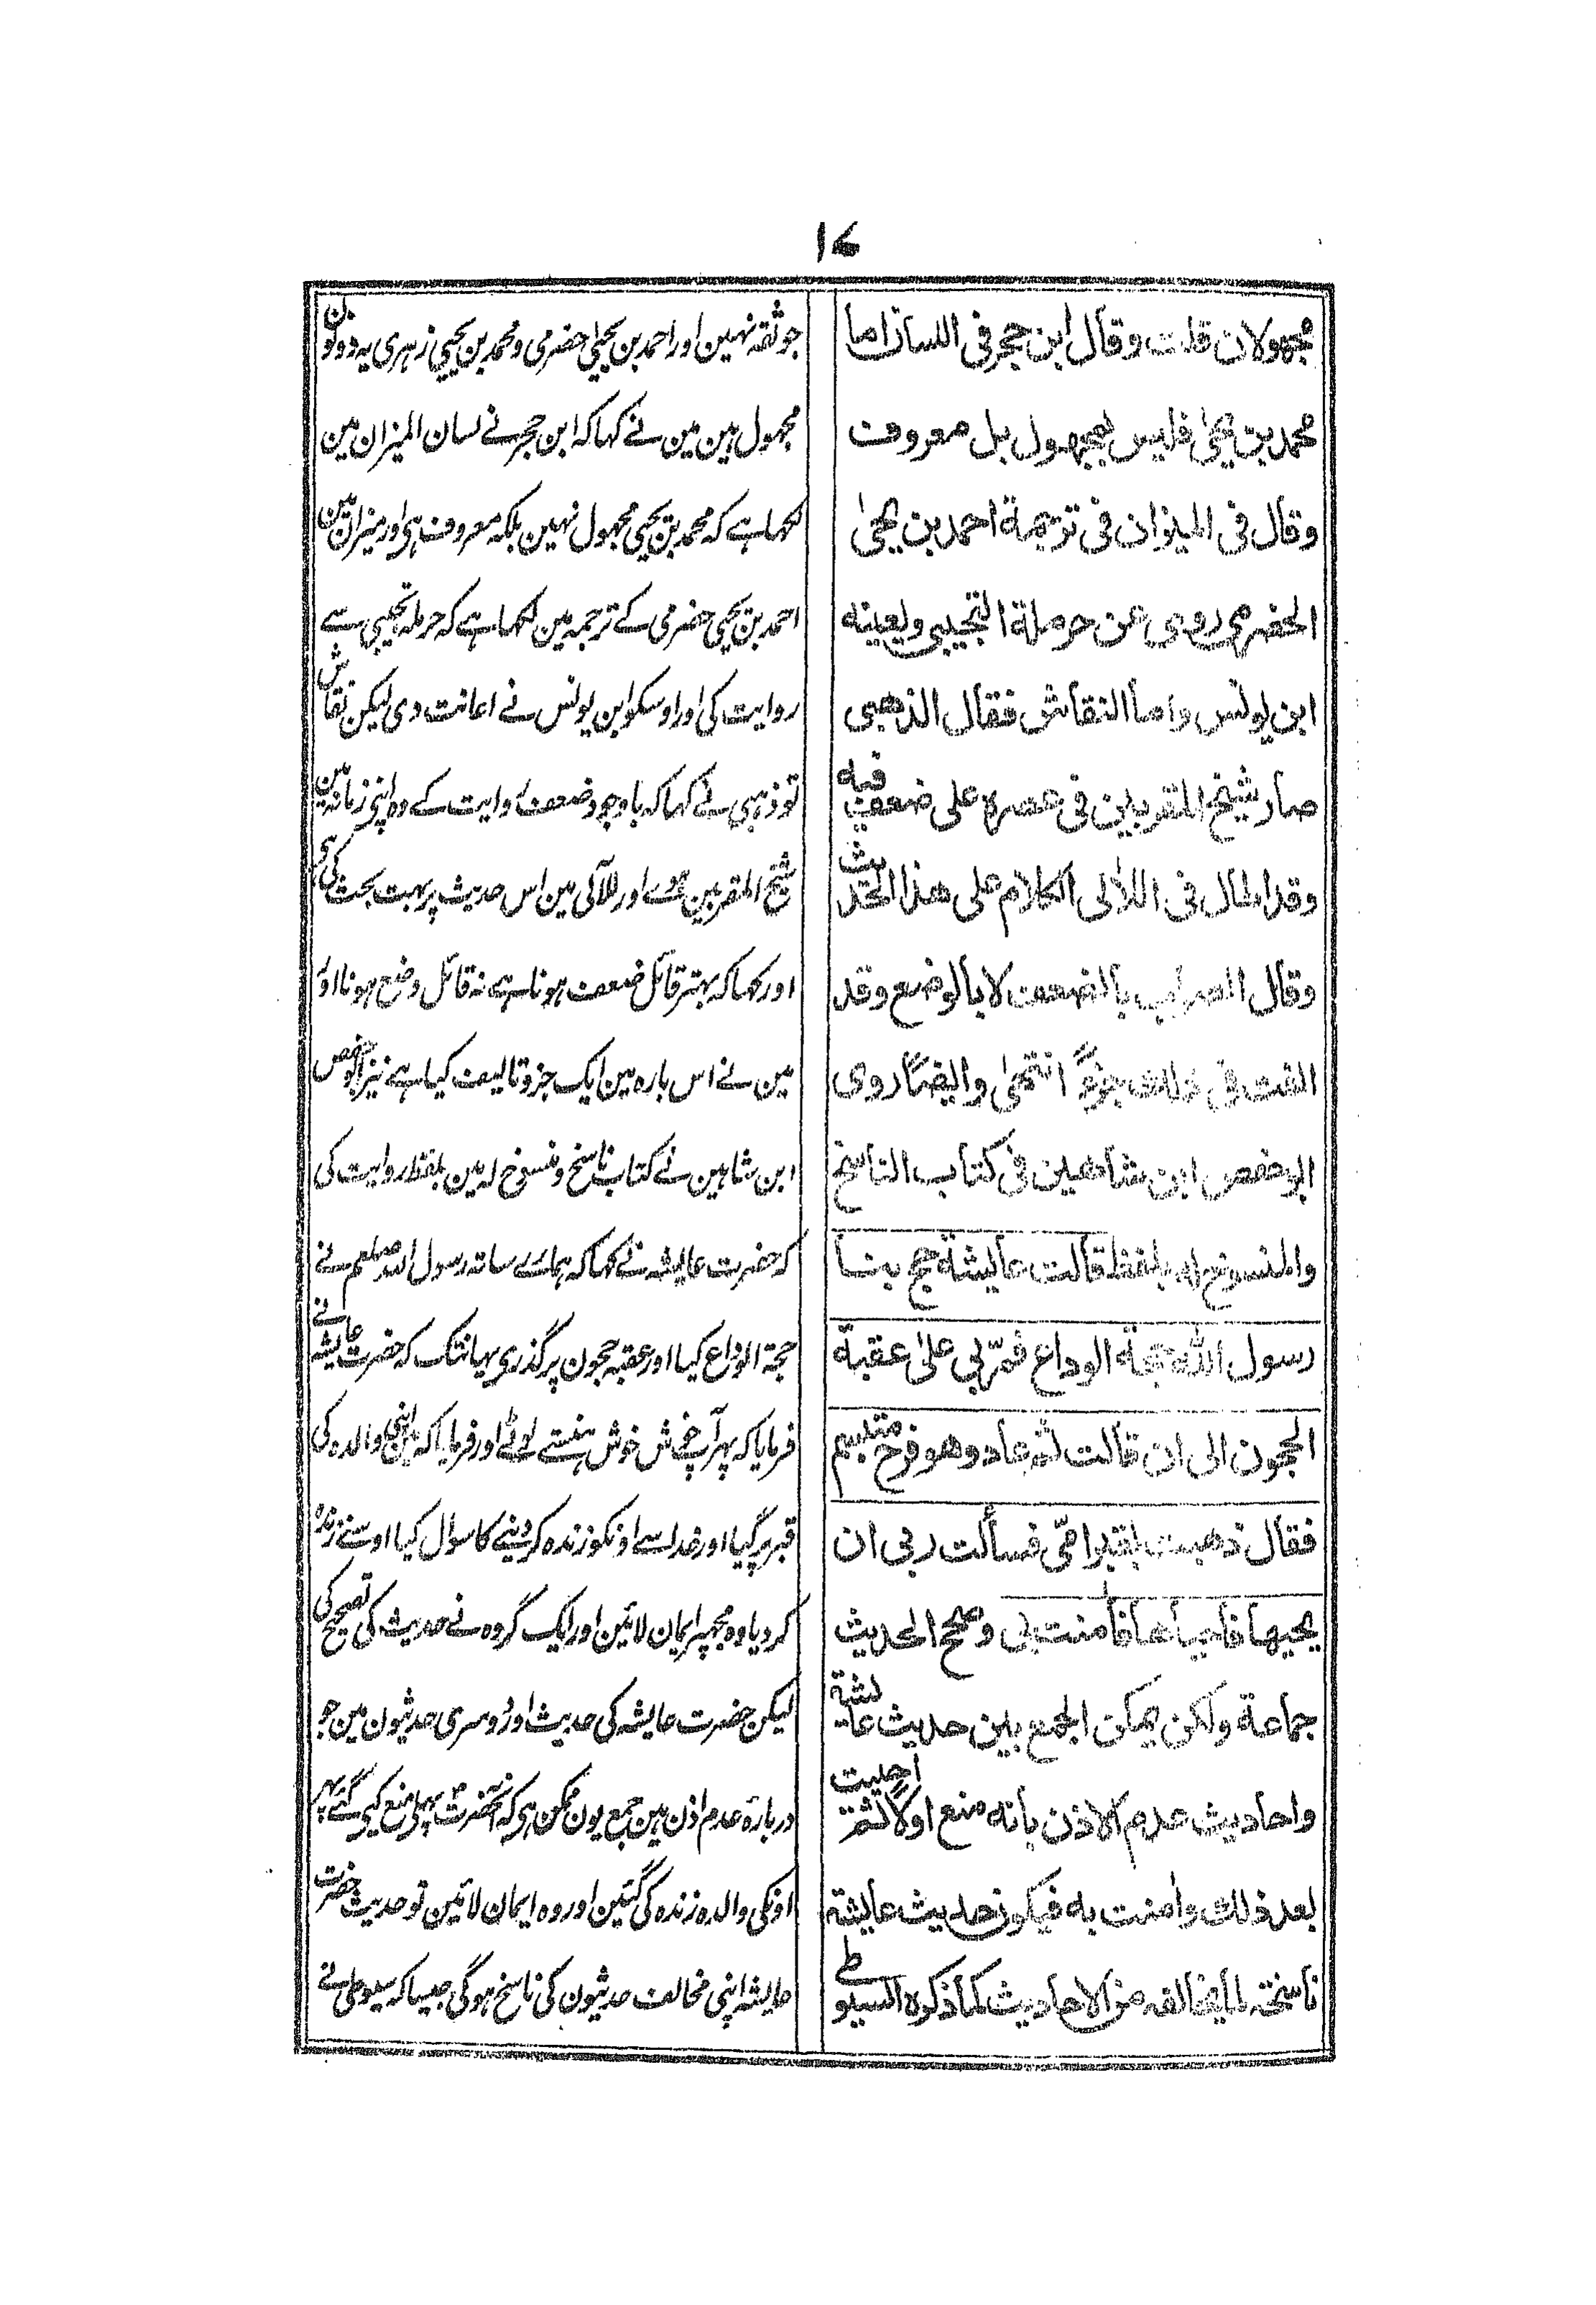 ۱۶
مجهولان قلت وقال ابن حجر فى اللسان اما
محمد بن يحيىٰ فليس بمجهول بل معروف
وقال فى الميزان فى ترجمة احمد بن يحيىٰ
الحضرمى روى عن حرملة التجيبى ولعينه
ابن يونس واما النقاش فقال الذهبى
صار شيخ المقربين فى عصره على ضعف فيه
وقد اطال فى اللآلى الكلام على هذا الحديث
وقال الصواب بالضعف لا بالوضع وقد
الفت فى ذلك جزءً انتهىٰ وايضًا روى
ابو حفص ابن شاهين فى كتاب الناسخ
والمنسوخ له بلفظ قالت عايشة حج بنا
رسول الله حجة الوداع فمرّ بى علىٰ عقبة
الحجون الى ان قالت ثم عاد وهو فرح متبسم
فقال ذهبت بقبر امّى فسألت ربى ان
يحييها فاحياها فآمنت بى وصحح الحديث
جماعة ولكن يمكن الجمع بين حديث عايشة
واحاديث عدم الاذن بانه منع اولًا ثم احييت
بعد ذلك وامنت به فيكون حديث عايشة
ناسخة لما يخالفه من الاحاديث كما ذكره السيوطى
جو ثقہ نہین اور احمد بن یحییٰ حضرمی و محمد بن یحیی زہری یہ دونون
مجہول ہین مین نے کہا کہ ابن حجر نے لسان المیزان مین
لکھا ہے کہ محمد بن یحیی مجہول نہین بلکہ معروف ہی اور میزان مین
احمد بن یحیی حضرمی کے ترجمہ مین لکھا ہے کہ حرملہ تجیبی سے
روایت کی اور اوسکو ابن یونس نے اعانت دی لیکن نقاش
تو ذہبی نے کہا کہ باوجود ضعف روایت کے وہ اپنی زمانہ مین
شیخ المقربین ہوے اور للآلی مین اس حدیث پر بہت بحث کی ہی
اور کہا کہ بہتر قائل ضعف ہونا ہے نہ قائل وضع ہونا اور
مین نے اس بارہ مین ایک جزو تالیف کیا ہے نیز ابو حفص
ابن شاہین نے کتاب ناسخ و منسوخ لہ مین بلفظ روایت کی
کہ حضرت عایشہ نے کہا کہ ہمارے ساتہ رسول اللہ صلعم نے
حجۃ الوداع کیا اور عقبہ حجون پر گذری یہانتک کہ حضرت عایشہ نے
فرمایا کہ پہر آپ خوش خوش ہنستے لوٹے اور فرمایا کہ مین اپنی والدہ کی
قبر پر گیا اور خدا سے اونکو زندہ کردینے کا سوال کیا اوسنے زندہ
کر دیا وہ مجہپر ایمان لائین اور ایک گروہ نے حدیث کی تصحیح کی
لیکن حضرت عایشہ کی حدیث اور دوسری حدیثون مین جو
دربارۂ عدم اذن ہین جمع یون ممکن ہی کہ آنحضرت پہلی منع کیے گئے پہر
اونکی والدہ زندہ کی گئین اور وہ ایمان لائین تو حدیث حضرت
عایشہ اپنی مخالف حدیثون کی ناسخ ہوگی جیسا کہ سیوطی نے